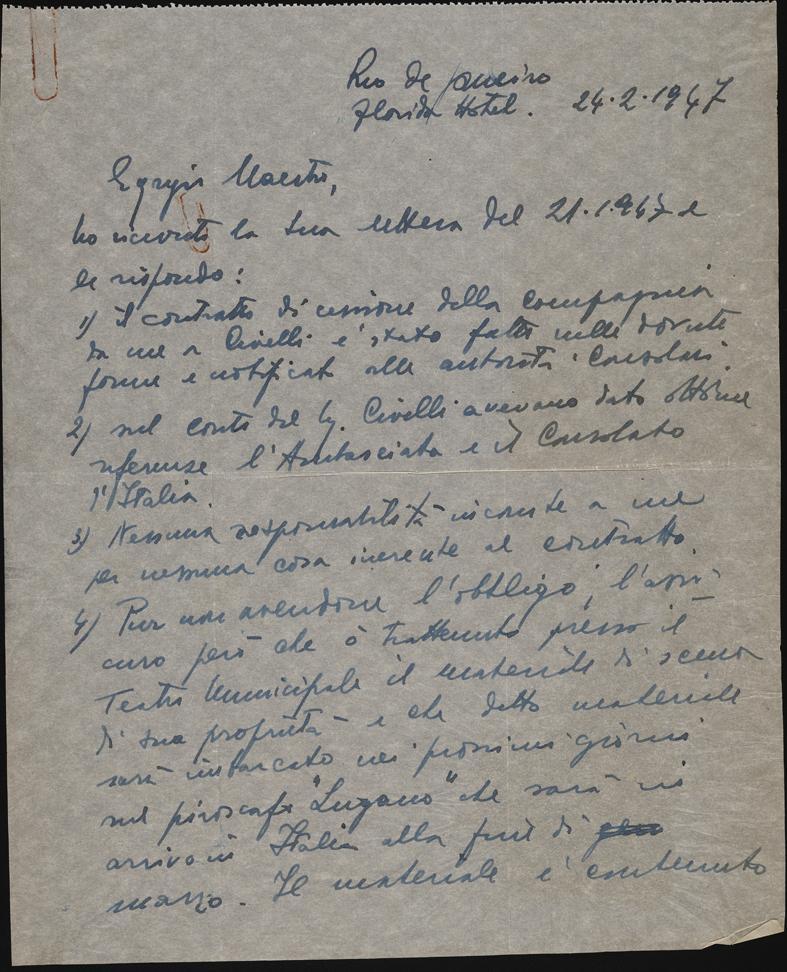 Rio de Janeiro
Florida Hotel. 24.2.1947
Egregio Maestro,
ho ricevuto la Sua lettera del 21.1.947 e
le rispondo:
1) il contratto di cessione della compagnia
da me a Civelli è stato fatto nelle dovute
forme e notificato alle autorità Consolari.
2) sul conto del Sig. Civelli avevano dato ottime
referenze l'Ambasciata e il Consolato
d'Italia.
3) Nessuna responsabilità incombe a me
per nessuna cosa inerente al contratto.
4) Pur non avendone l'obbligo, l'assi-
curo però che ò trattenuto presso il
Teatro Municipale il materiale di scena
di sua proprietà e che detto materiale
sarà imbarcato nei prossimi giorni
sul piroscafo "Lugano" che sarà in
arrivo in Italia alla fine di
marzo. Il materiale è contenuto